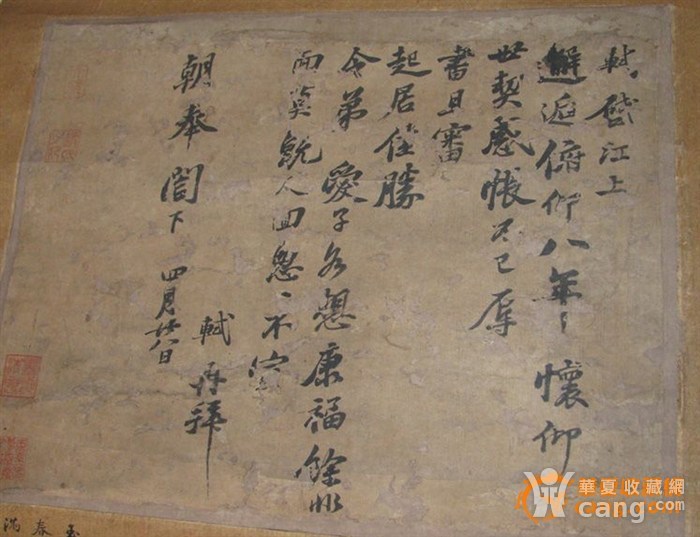 軾啟江上
邂逅俯仰八年懷仰
世契感悵不已辱
書且審
起居佳勝
令弟愛子各想康福餘非
面莫既人回怱〻不宣
軾再拜
朝奉閣下 四月廿八日
春滿
華夏收藏網
cang.com